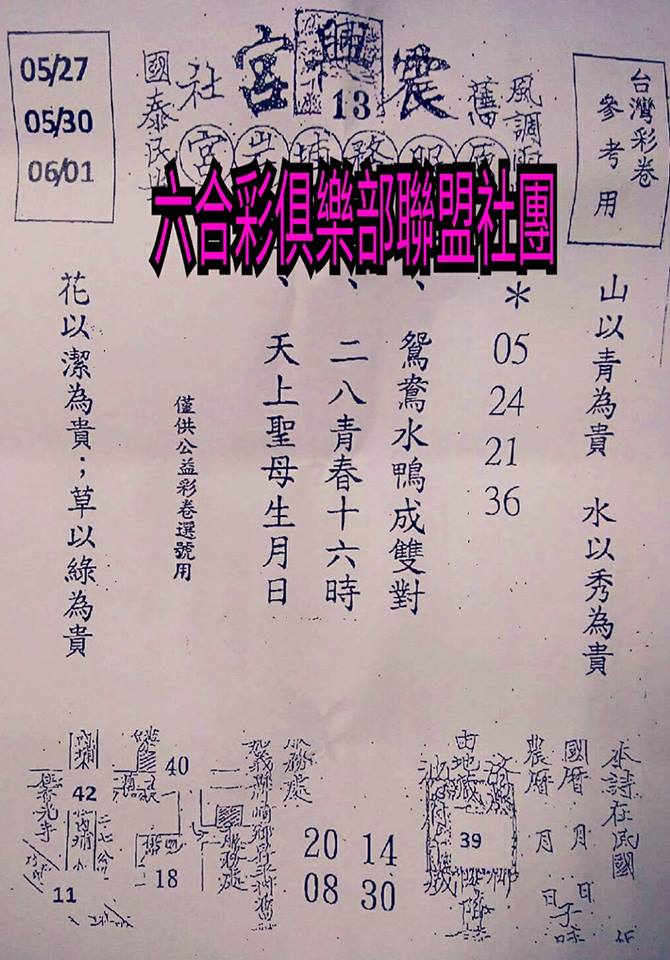 05/27
05/30
06/01
震興宮
13
台灣彩卷
參考用
國泰民
社
舊
風調雨
宮
服務
六合彩俱樂部聯盟社團
山以青為貴 水以秀為貴
*
05
24
21
36
、鴛鴦水鴨成雙對
、二八青春十六時
、天上聖母生月日
僅供公益彩卷選號用
花以潔為貴；草以綠為貴
本詩在民國
國曆 月 日
農曆 月 日
39
服務處
20 14
08 30
40
42
18
11